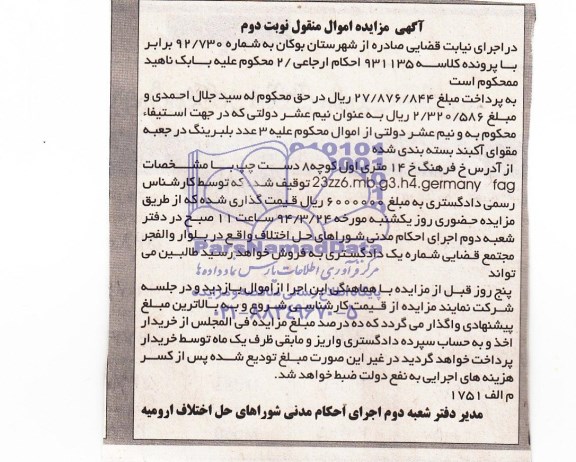 آگهی مزایده اموال منقول نوبت دوم
در اجرای نیابت قضایی صادره از شهرستان بوکان به شماره ۹۲/۷۳۰ برابر
با پرونده کلاسه ۹۳۱۱۳۵ احکام ارجاعی /۲ محکوم علیه بابک ناهید
ممحکوم است
به پرداخت مبلغ ۲۷/۸۷۶/۸۴۴ ریال در حق محکوم له سید جلال احمدی و
مبلغ ۲/۳۲۰/۵۸۶ ریال به عنوان نیم عشر دولتی که در جهت استیفاء
محکوم به و نیم عشر دولتی از اموال محکوم علیه ۳ عدد بلبرینگ در جعبه
مقوای آکبند بسته بندی شده
از آدرس خ فرهنگ خ ۱۴ متری اول کوچه ۸ دست چپ با مشخصات
23zz6.mb.g3.h4.germany fag توقیف شد که توسط کارشناس
رسمی دادگستری به مبلغ ۶۰۰۰۰۰۰ ریال قیمت گذاری شده که از طریق
مزایده حضوری روز یکشنبه مورخه ۹۴/۳/۲۴ ساعت ۱۱ صبح در دفتر
شعبه دوم اجرای احکام مدنی شوراهای حل اختلاف واقع در بلوار والفجر
مجتمع قضایی شماره یک دادگستری به فروش خواهد رسید طالبین می
تواند
پنج روز قبل از مزایده با هماهنگی این اجرا از اموال بازدید و در جلسه
شرکت نمایند مزایده از قیمت کارشناسی شروع و به بالاترین مبلغ
پیشنهادی واگذار می گردد که ده درصد مبلغ مزایده فی المجلس از خریدار
اخذ و به حساب سپرده دادگستری واریز و مابقی ظرف یک ماه توسط خریدار
پرداخت خواهد گردید در غیر این صورت مبلغ تودیع شده پس از کسر
هزینه های اجرایی به نفع دولت ضبط خواهد شد.
م الف ۱۷۵۱
مدیر دفتر شعبه دوم اجرای احکام مدنی شوراهای حل اختلاف ارومیه
ParsNamadData
مرکز فرآوری اطلاعات پارس نماد داده ها
۰۲۱-۸۸۳۴۹۶۷۰-۵